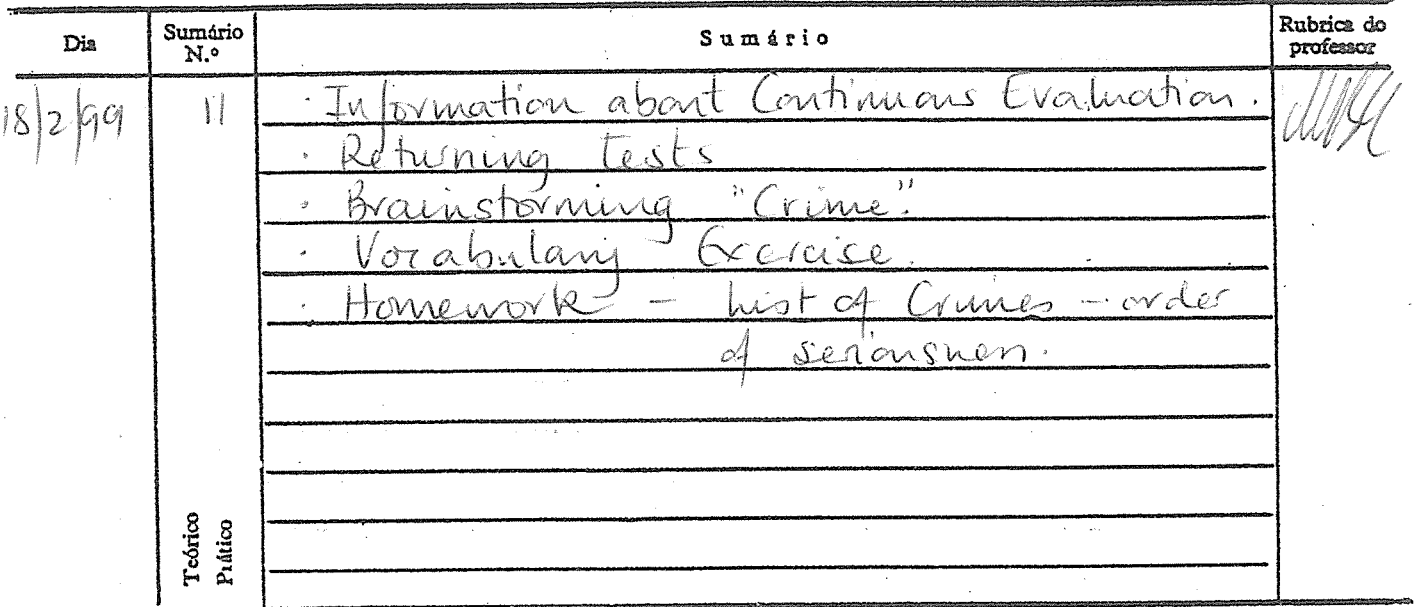 Dia
Sumário N.º
Sumário
Rubrica do professor
18/2/99
11
· Information about Continuous Evaluation.
· Returning tests
· Brainstorming "Crime".
· Vocabulary Exercise.
· Homework – List of Crimes – order
of seriousness.
Teórico
Prático